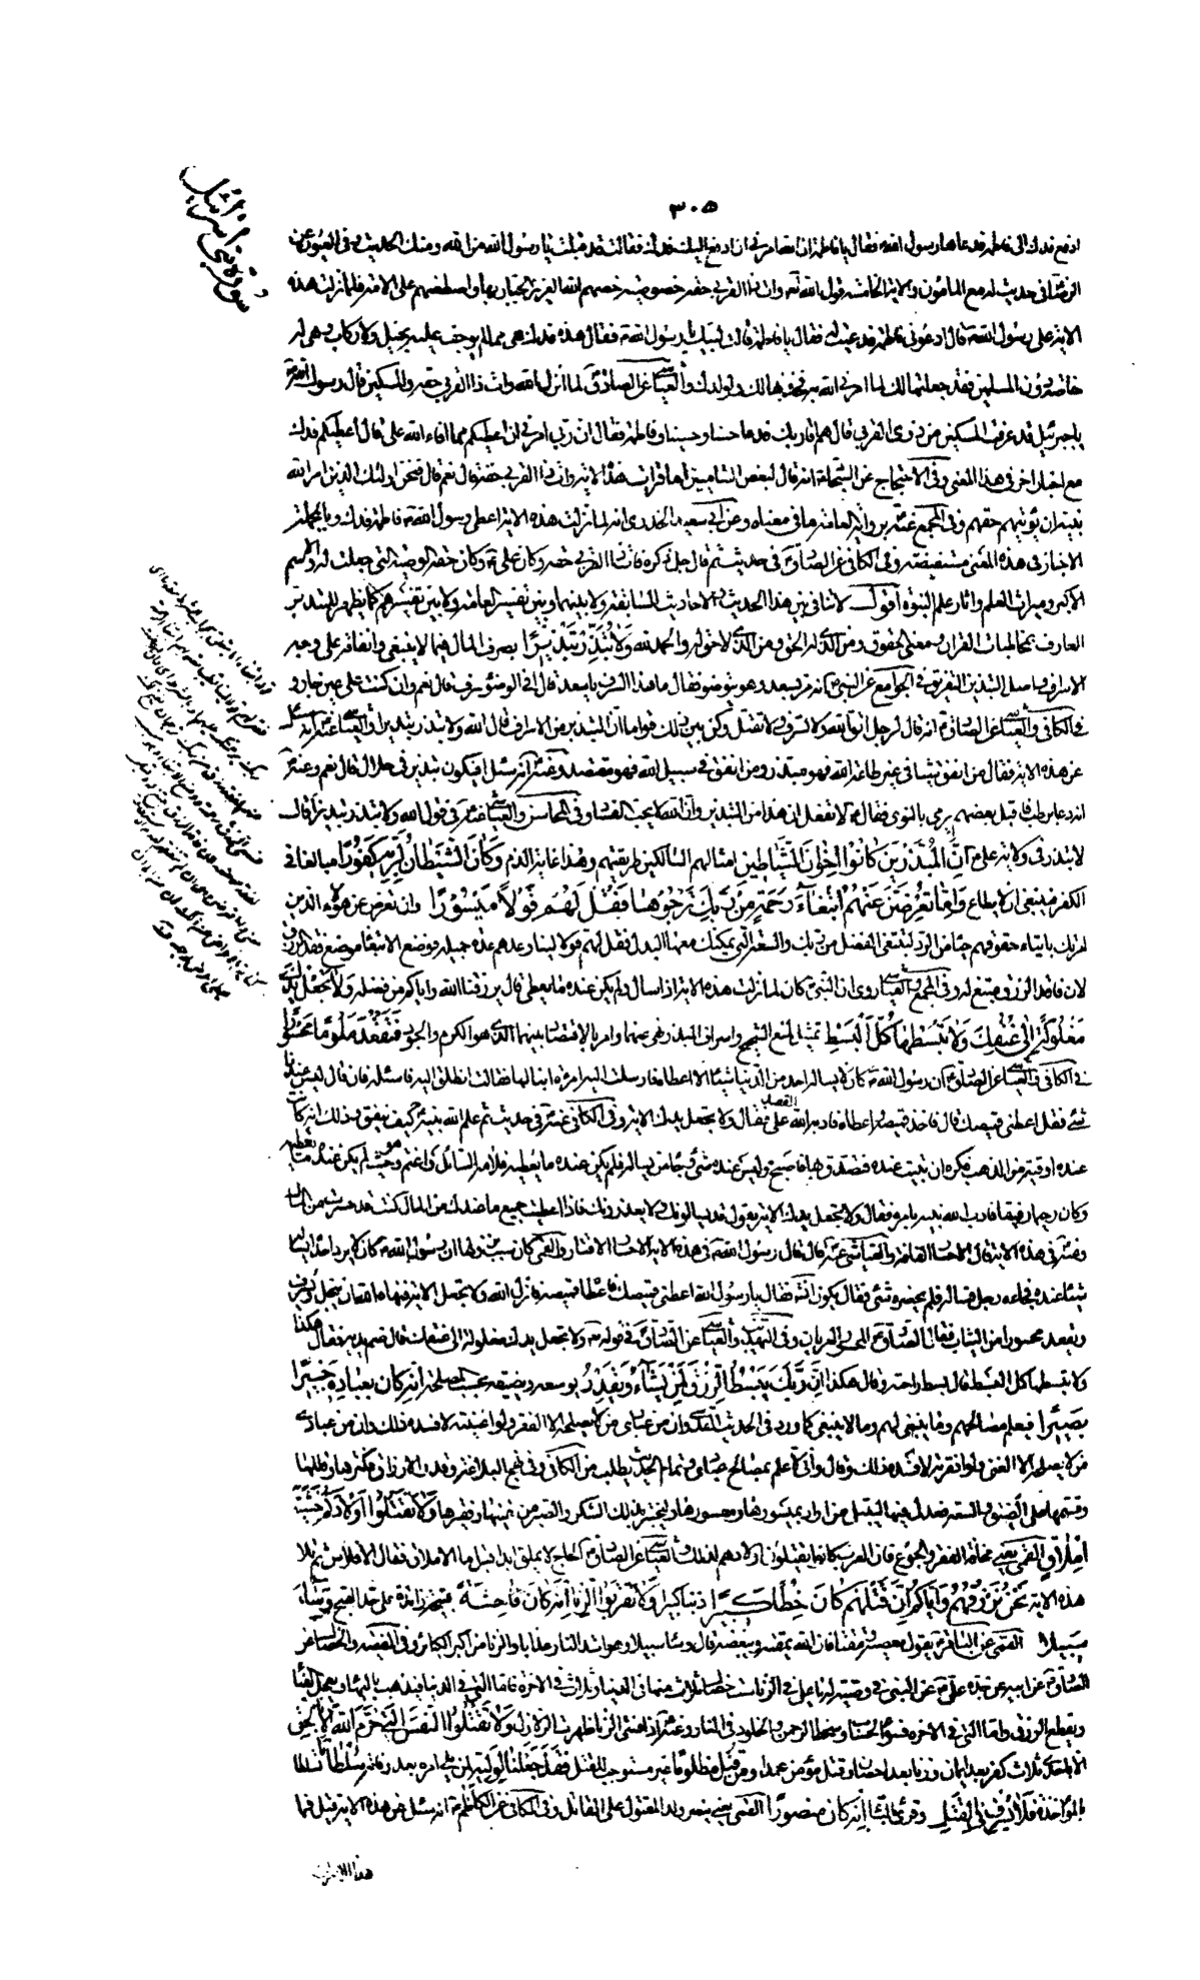 ٣٠٥
سورة بنی اسرائیل
ادفع فدك الى فاطمة فدعاها رسول الله فقال يا فاطمة ان الله امرنى ان ادفع اليك فدك فقالت قد قبلت يا رسول الله من الله ومنك الحديث وفى العيون عن
الرضا فى حديث له مع المأمون والاية الخامسة قول الله تعالى وات ذا القربى حقه خصوصية خصهم الله العزيز الجبار بها واصطفيهم على الامة فلما نزلت هذه
الاية على رسول الله قال ادعوا لى فاطمة فدعيت له فقال يا فاطمة قالت لبيك يا رسول الله فقال هذه فدك هى مما لم يوجف عليه بخيل ولا ركاب وهى لى
خاصة دون المسلمين فقد جعلتها لك لما امرنى الله به فخذيها لك ولولدك والعياشى عن الصادق لما انزل الله وات ذا القربى حقه والمسكين قال رسول الله
يا جبرئيل قد عرفت المسكين من ذوى القربى قال هم اقاربك فدعا حسنا وحسينا وفاطمة فقال ان ربى امرنى ان اعطيكم مما افاء الله على قال اعطيتكم فدك
مع اخبار اخر فى هذا المعنى وفى الاحتجاج عن السجاد انه قال لبعض الشاميين اما قرأت هذه الاية وات ذا القربى حقه قال نعم قال فنحن اولئك الذين امر الله
نبيه ان يؤتيهم حقهم وفى المجمع عنه برواية العامة ما فى معناه وعن ابى سعيد الخدرى انه لما نزلت هذه الاية اعطى رسول الله فاطمة فدك وبالجملة
الاخبار فى هذه المعنى مستفيضة وفى الكافى عن الصادق فى حديث ثم قال جل ذكره وات ذا القربى حقه وكان على وكان حقه الوصية التى جعلت له والاسم
الاكبر وميراث العلم واثار علم النبوة اقول لا تنافى بين هذا الحديث والاحاديث السابقة ولا بينهما وبين تفسير العامة ولا بين تفسيرهم كما يظهر للمتدبر
العارف بمخاطبات القران ومعنى الحقوق ومن الذى له الحق ومن الذى لا حق له والحمد لله وَلَا تُبَذِّرْ تَبْذِيرًا بصرف المال فيما لا ينبغى وانفاقه على وجه
الاسراف واصل التبذير التفريق فى الجوامع عن النبى انه مر بسعد وهو يتوضو فقال ما هذا السرف يا سعد قال افى الوضوء سرف قال نعم وان كنت على نهر جار و
فى الكافى والعياشى عن الصادق انه قال لرجل اتق الله ولا تسرف ولا تقتر وكن بين ذلك قواما ان التبذير من الاسراف قال الله ولا تبذر تبذيرا والعياشى عنه انه سئل
عن هذه الاية فقال من انفق شيئا فى غير طاعة الله فهو مبذر ومن انفق فى سبيل الله فهو مقتصد وعنه انه سئل افيكون تبذير فى حلال قال نعم وعنه
انه دعا برطب فاقبل بعضهم يرمى بالنوى فقال لا تفعل ان هذا من التبذير وان الله لا يحب الفساد وفى المحاسن والعياشى عنه فى قول الله ولا تبذر تبذيرا قال
لا تبذر فى ولاية على إِنَّ الْمُبَذِّرِينَ كَانُوا إِخْوَانَ الشَّيَاطِينِ امثالهم السالكين طريقتهم وهذا غاية الذم وَكَانَ الشَّيْطَانُ لِرَبِّهِ كَفُورًا مبالغا فى
الكفر فينبغى ان لا يطاع وَإِمَّا تُعْرِضَنَّ عَنْهُمُ ابْتِغَاءَ رَحْمَةٍ مِنْ رَبِّكَ تَرْجُوهَا فَقُلْ لَهُمْ قَوْلًا مَيْسُورًا وان تعرض عن هؤلاء الذين
امرتك بايتاء حقوقهم حياء من الرد لتبتغى الفضل من ربك والسعة التى يمكنك معها البذل فقل لهم قولا لينا وعدهم عدة جميلة فوضع الابتغاء موضع فقد الرزق
لان فاقد الرزق مبتغ له وفى المجمع والعياشى روى ان النبى كان لما نزلت هذه الاية اذا سئل ولم يكن عنده ما يعطى قال يرزقنا الله واياكم من فضله وَلَا تَجْعَلْ يَدَكَ
مَغْلُولَةً إِلَى عُنُقِكَ وَلَا تَبْسُطْهَا كُلَّ الْبَسْطِ تمثيل لمنع الشحيح واسراف المبذر نهى عنهما وامر بالاقتصاد بينهما الذى هو الكرم والجود فَتَقْعُدَ مَلُومًا مَحْسُورًا
فى الكافى والعياشى عن الصادق ان رسول الله كان لا يسأله احد من الدنيا شيئا الا اعطاه فارسلت اليه امرأة ابنا لها فقالت انطلق اليه فاسئله فان قال ليس عندنا
شئ فقل اعطنى قميصك قال فاخذ قميصه واعطاه فادبه الله على القصد فقال ولا تجعل يدك الاية وفى الكافى عنه فى حديث ثم علم الله نبيه كيف ينفق وذلك انه كانت
عنده اوقية من الذهب فكره ان تبيت عنده فتصدق بها فاصبح وليس عنده شئ وجاءه من يسأله فلم يكن عنده ما يعطيه فلامه السائل واغتم هو حيث لم يكن عنده ما يعطيه
وكان رحيما رفيقا فادب الله نبيه بامره فقال ولا تجعل يدك الاية يقول قد يسألونك ولا يعذرونك فاذا اعطيت جميع ما عندك من المال كنت قد حسرت من المال
وعنه فى هذه الاية قال الاحسار الفاقة والعياشى عنه قال قال رسول الله فى هذه الاية الاحسار الاقتار والقمى كان سبب نزولها ان رسول الله كان لا يرد احدا يسأله
شيئا عنده فجاءه رجل فسأله فلم يحضره شئ فقال يكون انشاء الله فقال يا رسول الله اعطنى قميصك فاعطاه قميصه فانزل الله ولا تجعل الاية فنهاه الله ان يبخل ويسرف
ويقعد محسورا من الثياب فقال الصادق المحسور العريان وفى التهذيب والعياشى عن الصادق فى قوله ولا تجعل يدك مغلولة الى عنقك قال ضم يده فقال هكذا
ولا تبسطها كل البسط قال بسط راحته وقال هكذا إِنَّ رَبَّكَ يَبْسُطُ الرِّزْقَ لِمَنْ يَشَاءُ وَيَقْدِرُ يوسعه ويضيقه بحسب المصلحة إِنَّهُ كَانَ بِعِبَادِهِ خَبِيرًا
بَصِيرًا فيعلم مصالحهم وما ينبغى لهم وما لا ينبغى كما ورد فى الحديث القدسى وان من عبادى من لا يصلحه الا الفقر ولو اغنيته لافسده ذلك وان من عبادى
من لا يصلحه الا الغنى ولو افقرته لافسده ذلك وقال وانى لاعلم بمصالح عبادى وتمام الحديث يطلب من الكافى وفى نهج البلاغة وقدر الارزاق فكثرها وقللها
وقسمها على الضيق والسعة فعدل فيها ليبتلى من اراد بميسورها ومعسورها وليختبر بذلك الشكر والصبر من غنيها وفقيرها وَلَا تَقْتُلُوا أَوْلَادَكُمْ خَشْيَةَ
إِمْلَاقٍ القمى يعنى مخافة الفقر والجوع فان العرب كانوا يقتلون اولادهم لذلك والعياشى عن الصادق الحاج لا يملق ابدا قيل ما الاملاق فقال الافلاس ثم تلا
هذه الاية نَحْنُ نَرْزُقُهُمْ وَإِيَّاكُمْ إِنَّ قَتْلَهُمْ كَانَ خِطْأً كَبِيرًا ذنبا كبيرا وَلَا تَقْرَبُوا الزِّنَا إِنَّهُ كَانَ فَاحِشَةً قبيحة زائدة على حد القبح وَسَاءَ
سَبِيلًا القمى عن الباقر يقول معصية ومقتا فان الله يمقته ويبغضه قال وساء سبيلا وهو اشد النار عذابا والزنا من اكبر الكبائر وفى الفقيه والخصال عن
الصادق عن ابيه عن جده على عن النبى فى وصيته له يا على فى الزنا ست خصال ثلاث منها فى الدنيا وثلاث فى الاخرة فاما التى فى الدنيا فيذهب بالبهاء ويعجل الفناء
ويقطع الرزق واما التى فى الاخرة فسوء الحساب وسخط الرحمن والخلود فى النار وعنه اذا فشى الزنا ظهرت الزلازل وَلَا تَقْتُلُوا النَّفْسَ الَّتِي حَرَّمَ اللَّهُ إِلَّا بِالْحَقِّ
الا باحدى ثلاث كفر بعد ايمان وزنا بعد احصان وقتل مؤمن عمدا وَمَنْ قُتِلَ مَظْلُومًا غير مستوجب للقتل فَقَدْ جَعَلْنَا لِوَلِيِّهِ لمن يلى امره بعد وفاته سُلْطَانًا تسلطا
بالمؤاخذة فَلَا يُسْرِفْ فِي الْقَتْلِ وقرئ بالتاء إِنَّهُ كَانَ مَنْصُورًا القمى يعنى ينصر ولد المقتول على القاتل وفى الكافى عن الكاظم انه سئل عن هذه الاية قيل فما
هذا الاسراف